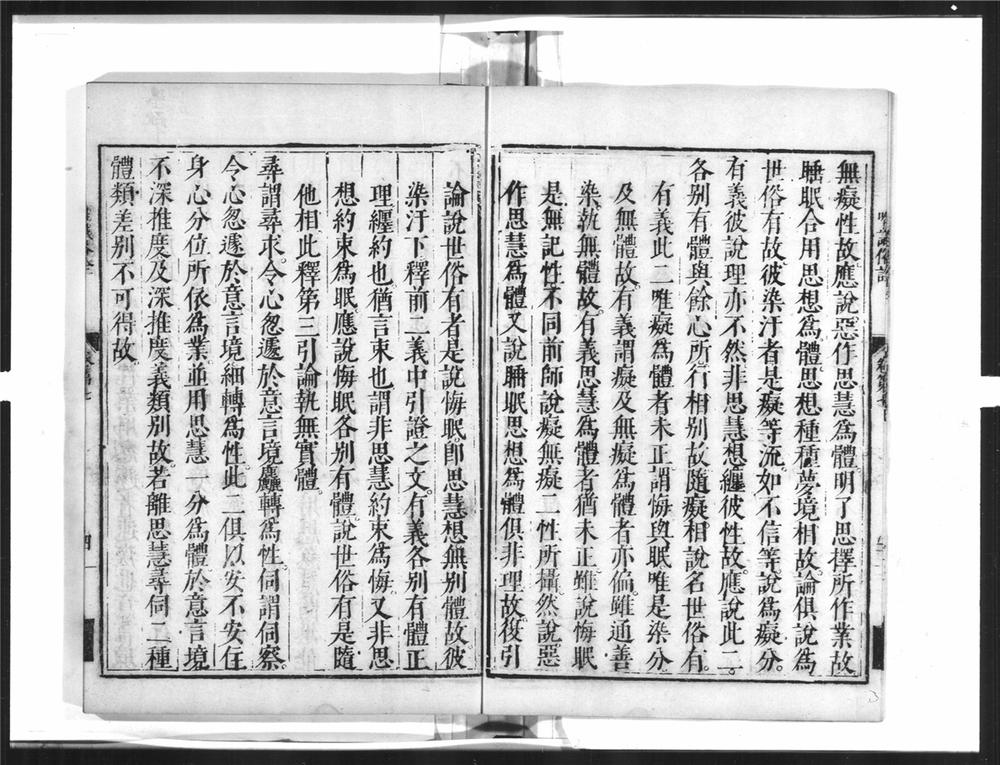 無癡性故應說惡作思慧爲體明了思擇所作業故
睡眠合用思想爲體思想種種夢境相故論俱說爲
世俗有故彼染汙者是癡等流如不信等說爲癡分
有義彼說理亦不然非思慧想纏彼性故應說此二
各別有體與餘心所行相別故隨癡相說名世俗有
有義此二唯癡爲體者未正謂悔與眠唯是染分
及無體故有義謂癡及無癡爲體者亦偏雖通善
染執無體故有義思慧爲體者猶未正雖說悔眠
是無記性不同前師說癡無癡二性所攝然說惡
作思慧爲體又說睡眠思想爲體俱非理故後引
論說世俗有者是說悔眠卽思慧想無別體故彼
染汙下釋前二義中引證之文有義各別有體正
理纏約也猶言束也謂非思慧約束爲悔又非思
想約束爲眠應說悔眠各別有體說世俗有是隨
他相此釋第三引論執無實體
尋謂尋求令心怱遽於意言境麤轉爲性伺謂伺察
令心怱遽於意言境細轉爲性此二俱以安不安住
身心分位所依爲業並用思慧一分爲體於意言境
不深推度及深推度義類別故若離思慧尋伺二種
體類差別不可得故